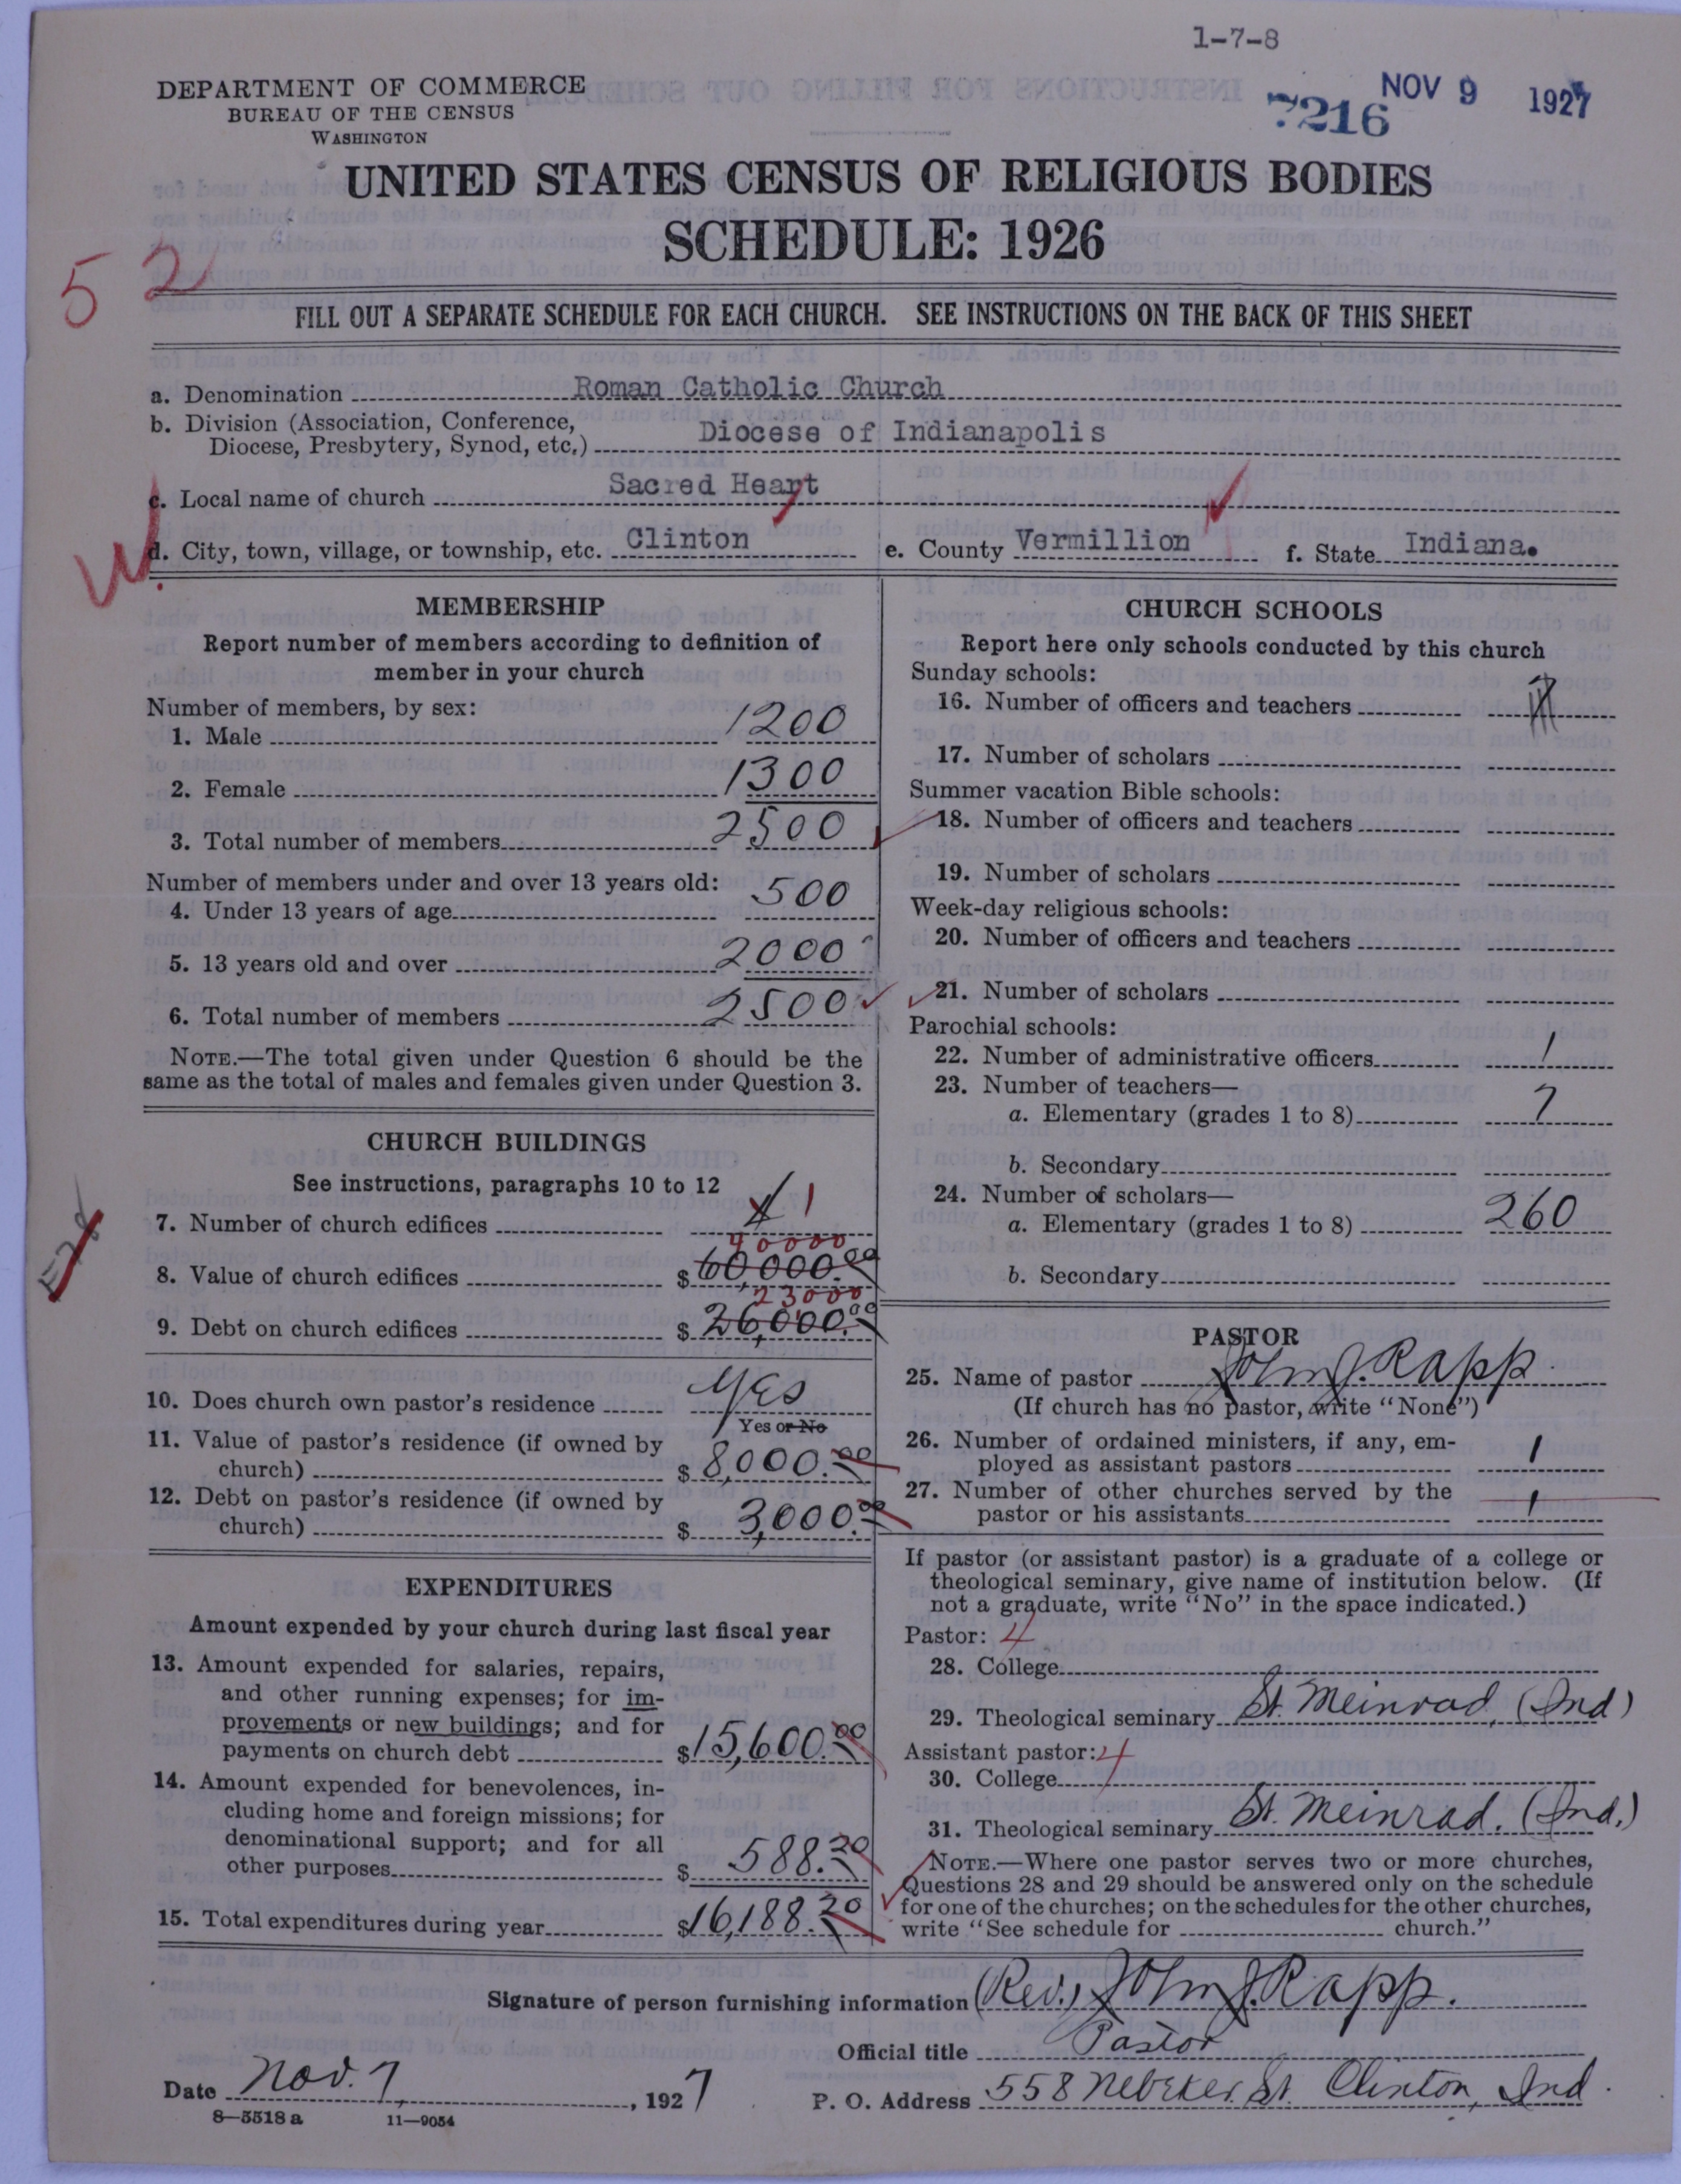 1-7-8
DEPARTMENT OF COMMERCE
BUREAU OF THE CENSUS
WASHINGTON
7216
NOV 9 1927
UNITED STATES CENSUS OF RELIGIOUS BODIES
SCHEDULE: 1926
52
FILL OUT A SEPARATE SCHEDULE FOR EACH CHURCH. SEE INSTRUCTIONS ON THE BACK OF THIS SHEET
a. Denomination Roman Catholic Church
b. Division (Association, Conference,
Diocese, Presbytery, Synod, etc.) Diocese of Indianapolis
c. Local name of church Sacred Heart
d. City, town, village, or township, etc. Clinton e. County Vermillion f. State Indiana.
W
MEMBERSHIP
Report number of members according to definition of
member in your church
Number of members, by sex:
1. Male 1200
2. Female 1300
3. Total number of members 2500
Number of members under and over 13 years old:
4. Under 13 years of age 500
5. 13 years old and over 2000
6. Total number of members 2500
NOTE.—The total given under Question 6 should be the
same as the total of males and females given under Question 3.
CHURCH BUILDINGS
See instructions, paragraphs 10 to 12
7. Number of church edifices 1
40000
8. Value of church edifices $ 60,000.00
23000
9. Debt on church edifices $ 26,000.00
10. Does church own pastor's residence Yes
Yes or No
11. Value of pastor's residence (if owned by
church) $ 8,000.00
12. Debt on pastor's residence (if owned by
church) $ 3,000.00
EXPENDITURES
Amount expended by your church during last fiscal year
13. Amount expended for salaries, repairs,
and other running expenses; for im-
provements or new buildings; and for
payments on church debt $15,600.00
14. Amount expended for benevolences, in-
cluding home and foreign missions; for
denominational support; and for all
other purposes $ 588.20
15. Total expenditures during year $16,188.20
CHURCH SCHOOLS
Report here only schools conducted by this church
Sunday schools:
16. Number of officers and teachers
17. Number of scholars
Summer vacation Bible schools:
18. Number of officers and teachers
19. Number of scholars
Week-day religious schools:
20. Number of officers and teachers
21. Number of scholars
Parochial schools:
22. Number of administrative officers 1
23. Number of teachers—
a. Elementary (grades 1 to 8) 7
b. Secondary
24. Number of scholars—
a. Elementary (grades 1 to 8) 260
b. Secondary
PASTOR
25. Name of pastor John J. Rapp
(If church has no pastor, write "None")
26. Number of ordained ministers, if any, em-
ployed as assistant pastors 1
27. Number of other churches served by the
pastor or his assistants 1
If pastor (or assistant pastor) is a graduate of a college or
theological seminary, give name of institution below. (If
not a graduate, write "No" in the space indicated.)
Pastor: 4
28. College
29. Theological seminary St. Meinrad, (Ind)
Assistant pastor: 4
30. College
31. Theological seminary St. Meinrad. (Ind.)
NOTE.—Where one pastor serves two or more churches,
Questions 28 and 29 should be answered only on the schedule
for one of the churches; on the schedules for the other churches,
write "See schedule for church."
Signature of person furnishing information (Rev.) John J. Rapp.
Official title Pastor
Date Nov. 7, 1927 P. O. Address 558 Nebeker St. Clinton, Ind.
8—5518 a 11—9054